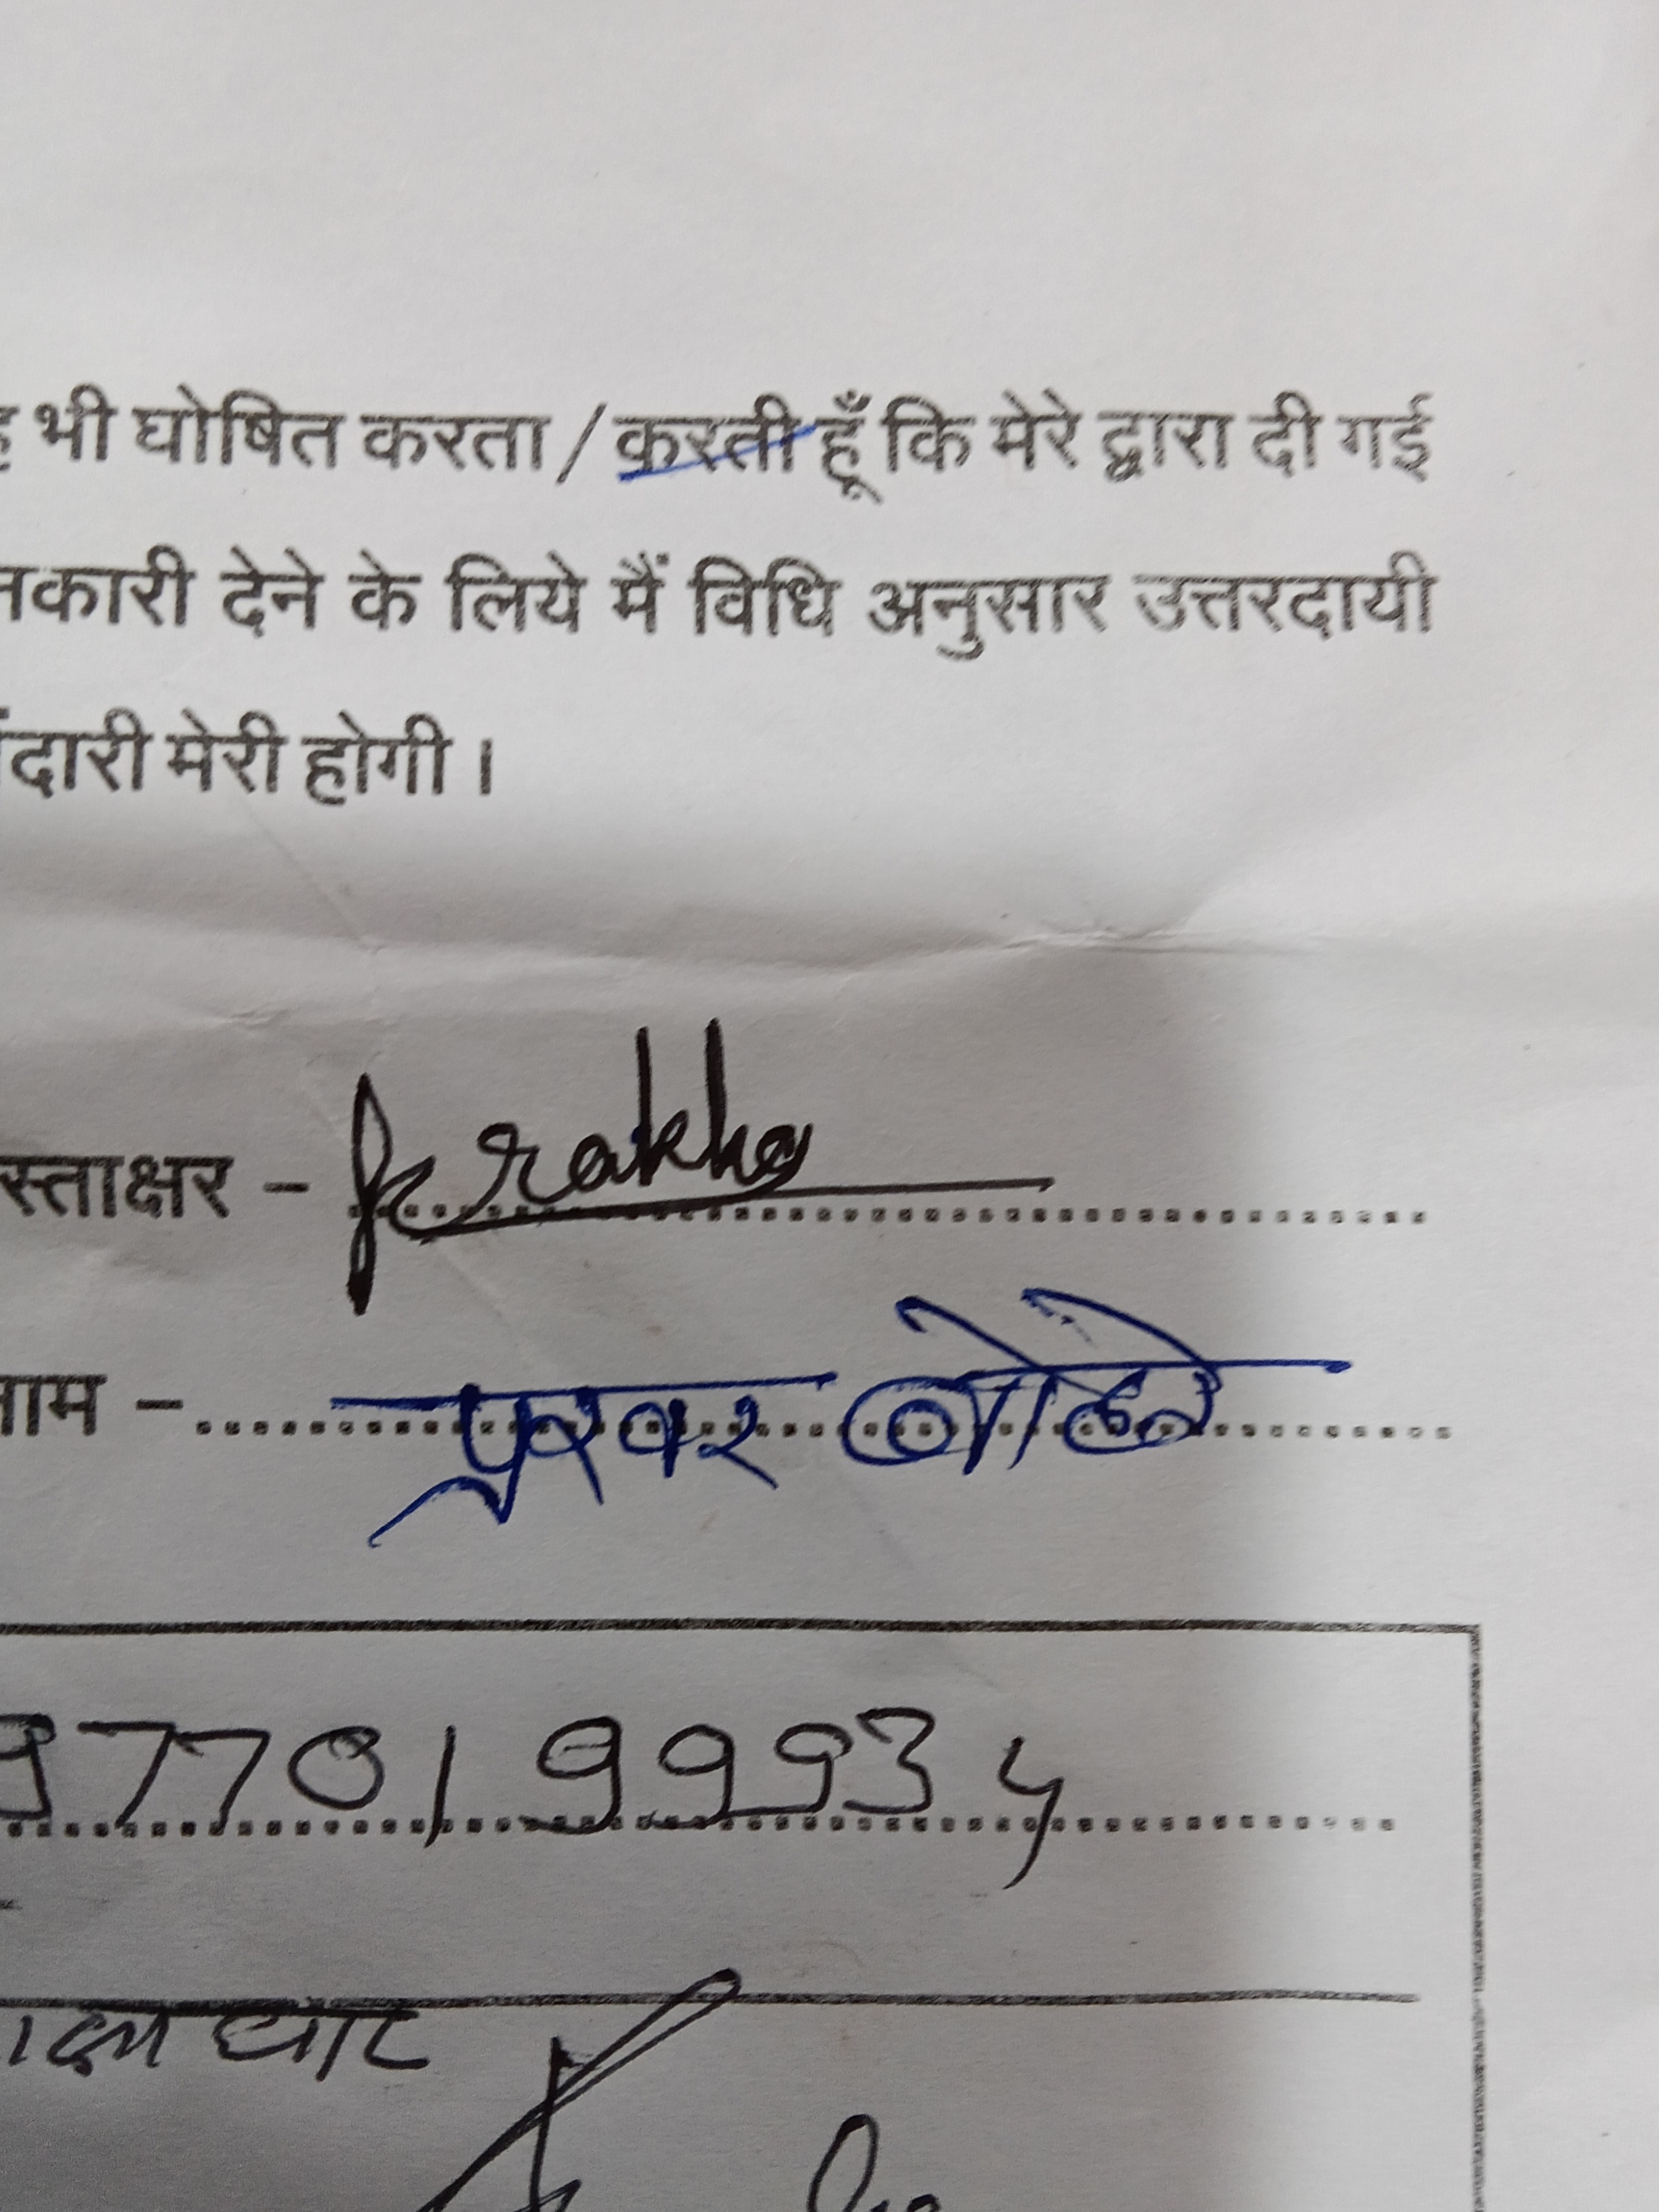 भी घोषित करता / करती हूँ कि मेरे द्वारा दी गई
नकारी देने के लिये मैं विधि अनुसार उत्तरदायी
दारी मेरी होगी।
स्ताक्षर -
नाम - प्रखर लोहे
9770199934